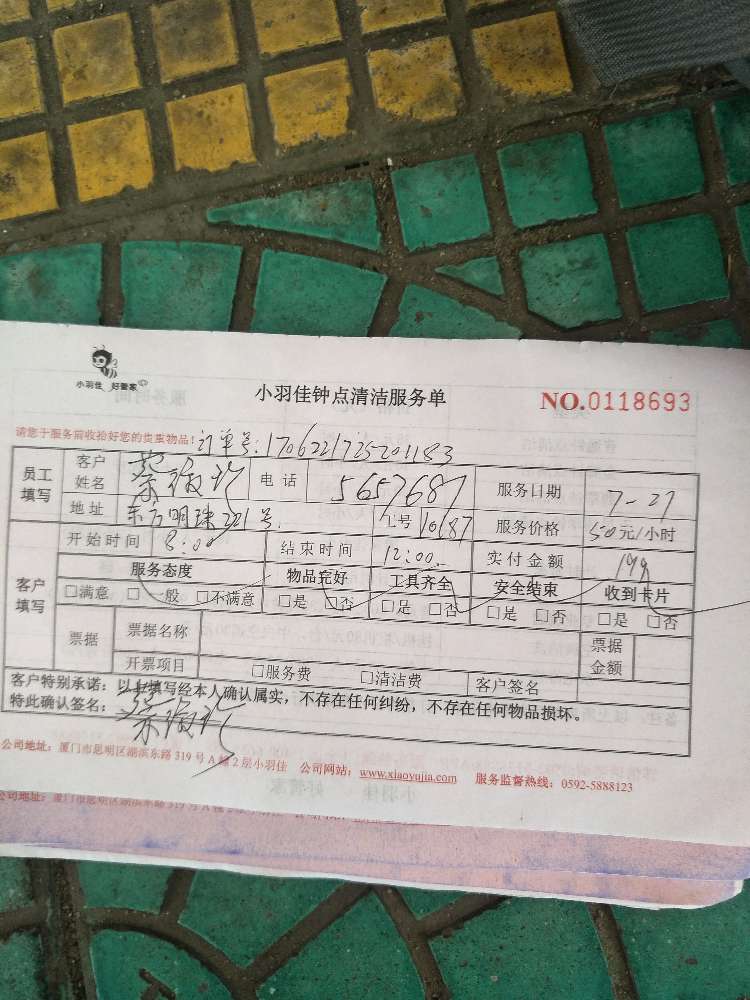 小羽佳 好管家
小羽佳钟点清洁服务单
NO.0118693
请您于服务前收拾好您的贵重物品!订单号:1706221725201183
员工填写 客户姓名 电话 5657687 服务日期 7-27
地址 东方明珠221号 工号 10187 服务价格 50元/小时
客户填写 开始时间 8:00 结束时间 12:00 实付金额 199
服务态度 物品完好 工具齐全 安全结束 收到卡片
□满意 □一般 □不满意 □是 □否 □是 □否 □是 □否 □是 □否
票据 票据名称 票据金额
开票项目 □服务费 □清洁费 客户签名
客户特别承诺:以上填写经本人确认属实,不存在任何纠纷,不存在任何物品损坏。
特此确认签名:
公司地址:厦门市思明区湖滨东路319号A幢2层小羽佳 公司网站:www.xiaoyujia.com 服务监督热线:0592-5888123
公司地址:厦门市思明区湖滨东路319号A